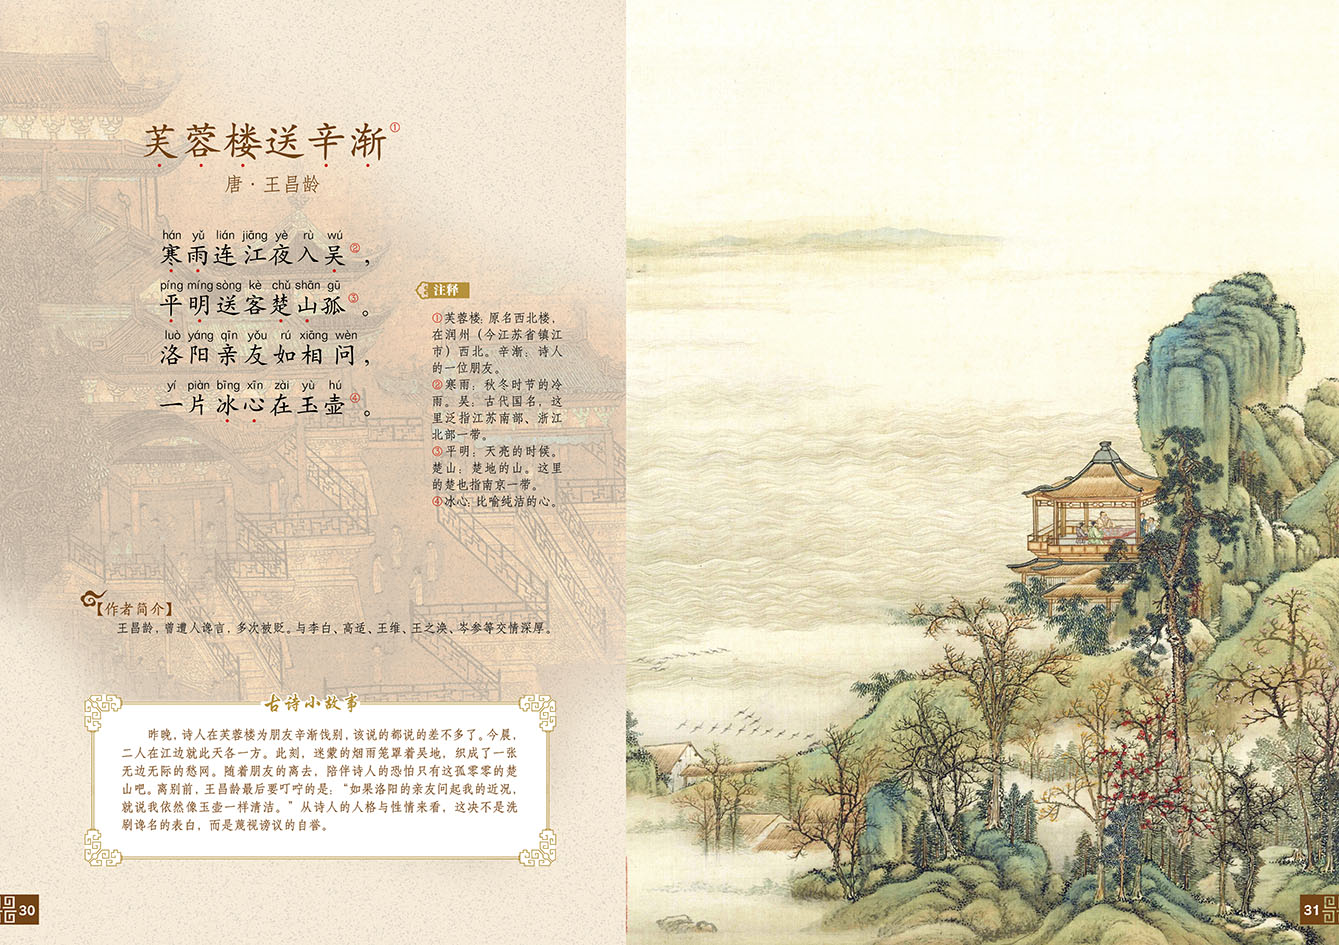 芙蓉楼送辛渐①
唐·王昌龄
hán yǔ lián jiāng yè rù wú
寒雨连江夜入吴②，
píng míng sòng kè chǔ shān gū
平明送客楚山孤③。
luò yáng qīn yǒu rú xiāng wèn
洛阳亲友如相问，
yí piàn bīng xīn zài yù hú
一片冰心在玉壶④。
注释
①芙蓉楼：原名西北楼，
在润州（今江苏省镇江
市）西北。辛渐：诗人
的一位朋友。
②寒雨：秋冬时节的冷
雨。吴：古代国名，这
里泛指江苏南部、浙江
北部一带。
③平明：天亮的时候。
楚山：楚地的山。这里
的楚也指南京一带。
④冰心：比喻纯洁的心。
【作者简介】
王昌龄，曾遭人谗言，多次被贬。与李白、高适、王维、王之涣、岑参等交情深厚。
古诗小故事
昨晚，诗人在芙蓉楼为朋友辛渐饯别，该说的都说的差不多了。今晨，
二人在江边就此天各一方。此刻，迷蒙的烟雨笼罩着吴地，织成了一张
无边无际的愁网。随着朋友的离去，陪伴诗人的恐怕只有这孤零零的楚
山吧。离别前，王昌龄最后要叮咛的是：“如果洛阳的亲友问起我的近况，
就说我依然像玉壶一样清洁。”从诗人的人格与性情来看，这决不是洗
刷谗名的表白，而是蔑视谤议的自誉。
30
31